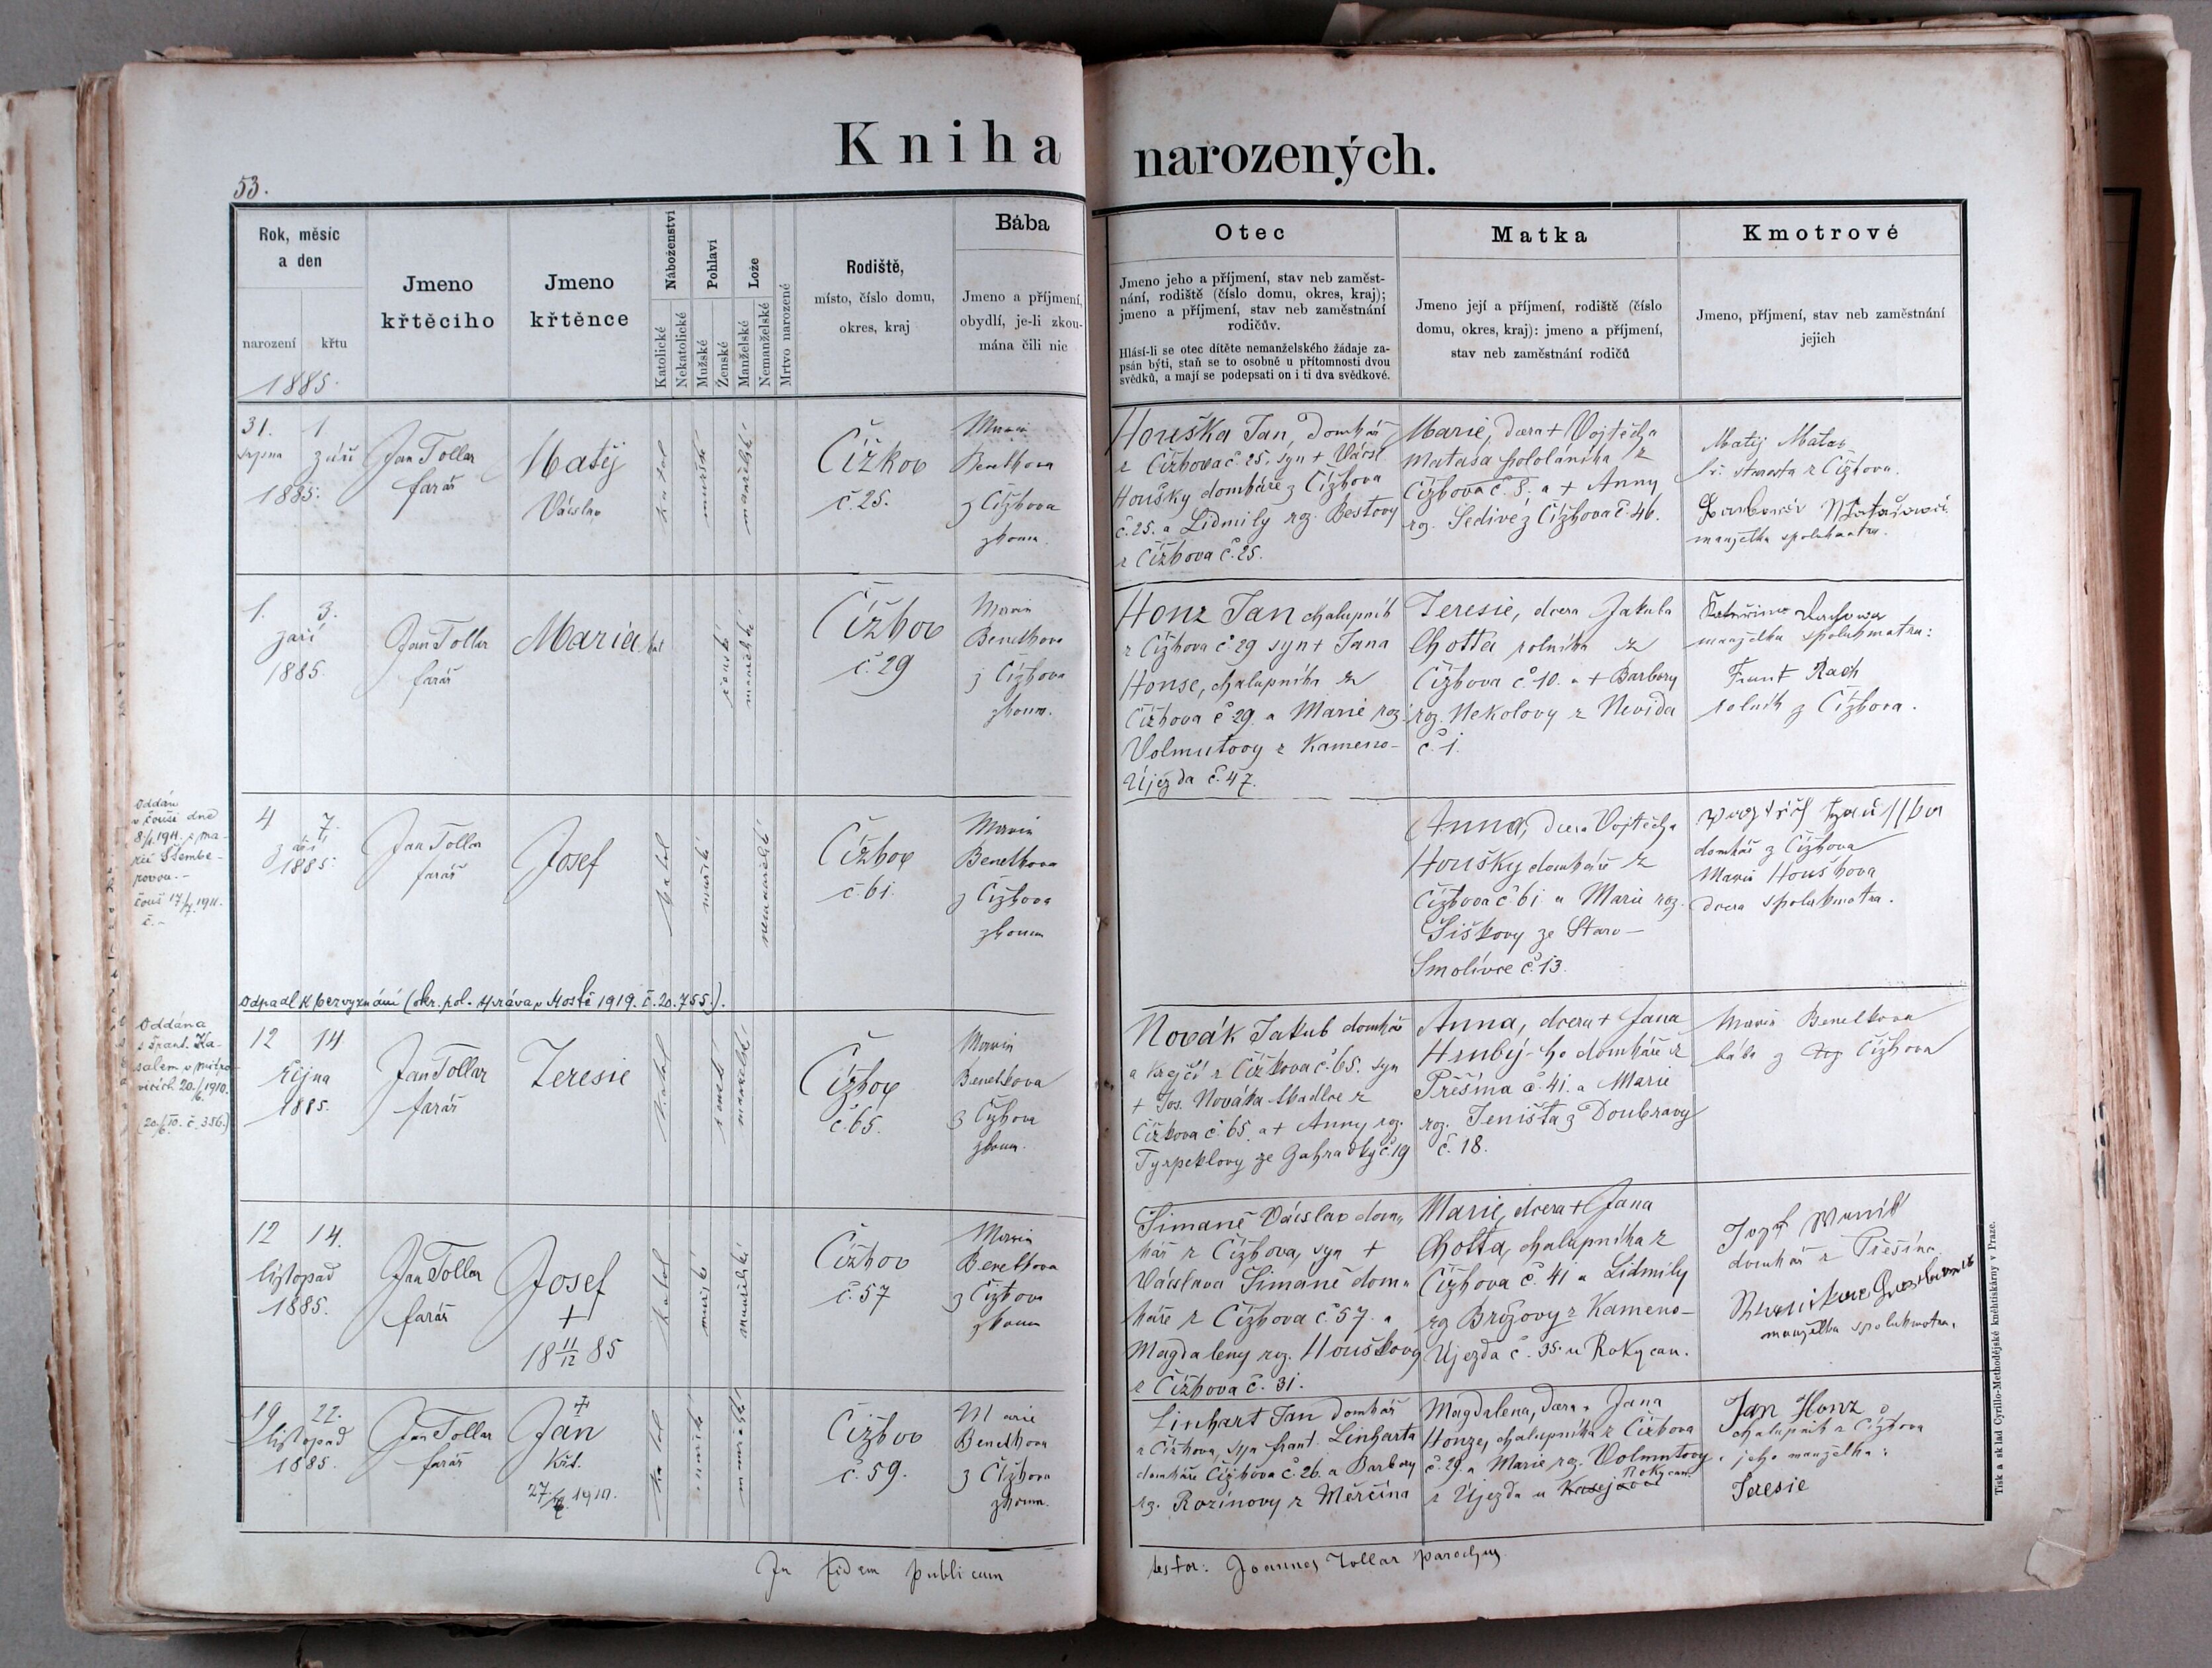 Kniha narozených.
53.
Rok, měsíc
a den
narození
křtu
1885.
Jmeno
křtěcího
Jmeno
křtěnce
Náboženství
Katolické
Nekatolické
Pohlaví
Mužské
Ženské
Lože
Manželské
Nemanželské
Mrtvo narozené
Rodiště,
místo, číslo domu,
okres, kraj
Bába
Jmeno a příjmení,
obydlí, je-li zkou-
mána čili nic
Otec
Jmeno jeho a příjmení, stav neb zaměst-
nání, rodiště (číslo domu, okres, kraj);
jmeno a příjmení, stav neb zaměstnání
rodičův.
Hlásí-li se otec dítěte nemanželského žádaje za-
psán býti, staň se to osobně u přítomnosti dvou
svědků, a mají se podepsati on i ti dva svědkové.
Matka
Jmeno její a příjmení, rodiště (číslo
domu, okres, kraj): jmeno a příjmení,
stav neb zaměstnání rodičů
Kmotrové
Jmeno, příjmení, stav neb zaměstnání
jejich
31. 1
srpna září
1885.
Jan Tollar
farář
Matěj
Václav
katol
mužské
manželské
Čížkov
č. 25.
Marie
Benetkova
z Čížkova
zkoum.
Houška Jan, domkář
z Čížkova č. 25. syn + Václ.
Houšky domkáře z Čížkova
č. 25. a Lidmily roz. Bestovy
z Čížkova č. 25.
Marie, dcera + Vojtěcha
Matasa pololáníka z
Čížkova č. 5. a + Anny
roz. Šedive z Čížkova č. 46.
Matěj Matas
starosta z Čížkova.
manželka spolukmotra.
1. 3.
září
1885.
Jan Tollar
farář
Maria
kat
ženské
manželské
Čížkov
č. 29
Marie
Benetkova
z Čížkova
zkoum.
Honz Jan chalupník
z Čížkova č 29 syn + Jana
Honse, chalupníka z
Čížkova č 29. a Marie roz.
Volmutovy z Kameno-
Újezda č. 47.
Teresie, dcera Jakuba
Chotta rolníka z
Čížkova č. 10. a + Barbory
roz. Nekolovy z Nevida
č. 1.
Kateřina
manželka spolukmotra:
Frant Rach
rolník z Čížkova.
Oddán
v Souši dne
8/1 1911. s Ma-
rií Štembe-
rovou.-
Souš 17/7 1911.
č. -
4 7.
září
1885.
Jan Tollar
farář
Josef
katol
mužské
nemanželské
Čížkov
č. 61.
Marie
Benetkova
z Čížkova
zkoum
Anna, dcera Vojtěcha
Houšky domkáře z
Čížkova č 61 a Marie roz.
Šiškovy ze Staro-
Smolivce č. 13.
domkář z Čížkova
Marie Houškova
dcera spolukmotra.
Odpadl k bezvyznání (okr. pol. správa v Mostě 1919. č. 20.755.).
Oddána
s Frant. Ka-
salem v Mirošo-
vicích 20./6. 1910.
(20./6. 10. č. 356.)
12 14
října
1885.
Jan Tollar
farář
Teresie
katol
ženské
manželské
Čížkov
č. 65.
Marie
Benetkova
z Čížkova
zkoum.
Novák Jakub domkář
a krejčí z Čížkova č. 65. syn
+ Jos. Nováka z
Čížkova č. 65. a + Anny roz.
Tyrpeklovy ze Zahrádky č. 19
Anna, dcera + Jana
Hrubý-ho domkáře z
Přešína č. 41. a Marie
roz. Teništa z Doubravy
č. 18.
Marie Benetkova
bába z Čížkova
12 14.
listopad
1885.
Jan Tollar
farář
Josef
+
18 11/12 85
katol
mužské
manželské
Čížkov
č. 57
Marie
Benetkova
z Čížkova
zkoum
Šimaně Václav dom-
kář z Čížkova, syn +
Václava Šimaně dom-
káře z Čížkova č 57. a
Magdaleny roz. Houškovy
z Čížkova č. 31.
Marie, dcera + Jana
Chotta, chalupníka z
Čížkova č. 41 a Lidmily
roz Brožovy z Kameno-
Újezda č. 35. u Rokycan.
domkář z Přešína
manželka spolukmotra.
19 22.
listopad
1885.
Jan Tollar
farář
+
Jan
Křt.
katol
mužské
manželské
Čížkov
č. 59.
Marie
Benetkova
z Čížkova
zkoum.
Linhart Jan domkář
z Čížkova, syn Frant. Linharta
domkáře Čížkova č. 26. a Barbory
roz. Rozinovy z Měrčína
Magdalena, dcera Jana
Honze, chalupníka z Čížkova
č. 29. a Marie roz. Volmutovy
z Újezda u Rokycan
Jan Honz
chalupník z Čížkova
a jeho manželka:
Teresie
In fidem publicam
testor: Joannes Tollar parochus
Tisk a sklad Cyrillo-Methodějské knihtiskárny v Praze.